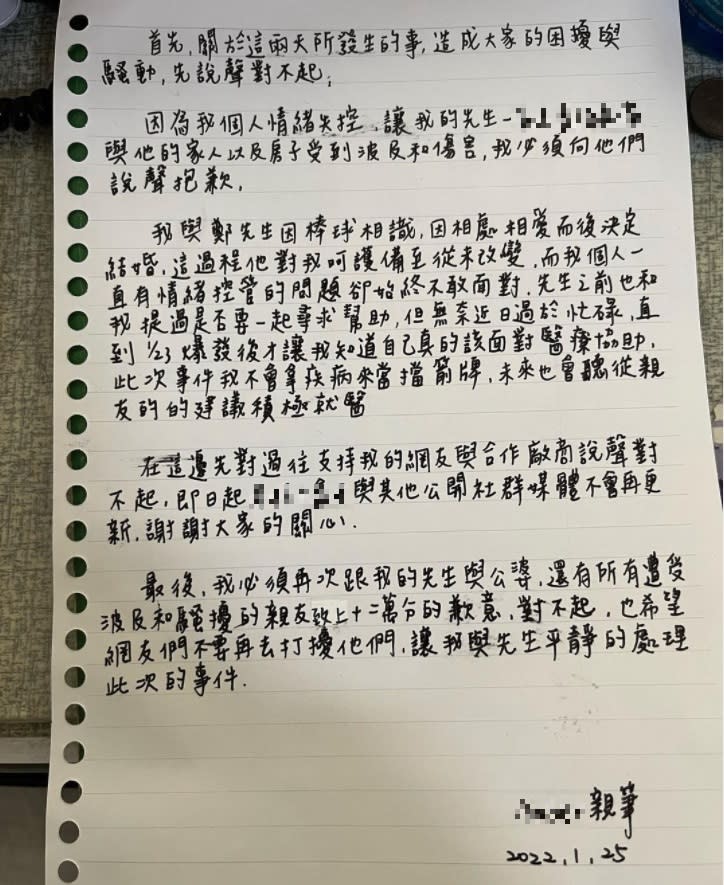 首先，關於這兩天所發生的事，造成大家的困擾與
騷動，先說聲對不起；
因為我個人情緒失控，讓我的先生－
與他的家人以及房子受到波及和傷害，我必須向他們
說聲抱歉，
我與鄭先生因棒球相識，因相處相愛而後決定
結婚，這過程他對我呵護備至從未改變，而我個人一
直有情緒控管的問題卻始終不敢面對，先生之前也和
我提過是否要一起尋求幫助，但無奈近日過於忙碌，直
到1/23爆發後才讓我知道自己真的該面對醫療協助，
此次事件我不會拿疾病來當擋箭牌，未來也會聽從親
友的的建議積極就醫
在這邊先對過往支持我的網友與合作廠商說聲對
不起，即日起 與其他公開社群媒體不會再更
新，謝謝大家的關心．
最後，我必須再次跟我的先生與公婆，還有所有遭受
波及和騷擾的親友致上十二萬分的歉意，對不起，也希望
網友們不要再去打擾他們，讓我與先生平靜的處理
此次的事件．
親筆
2022，1，25